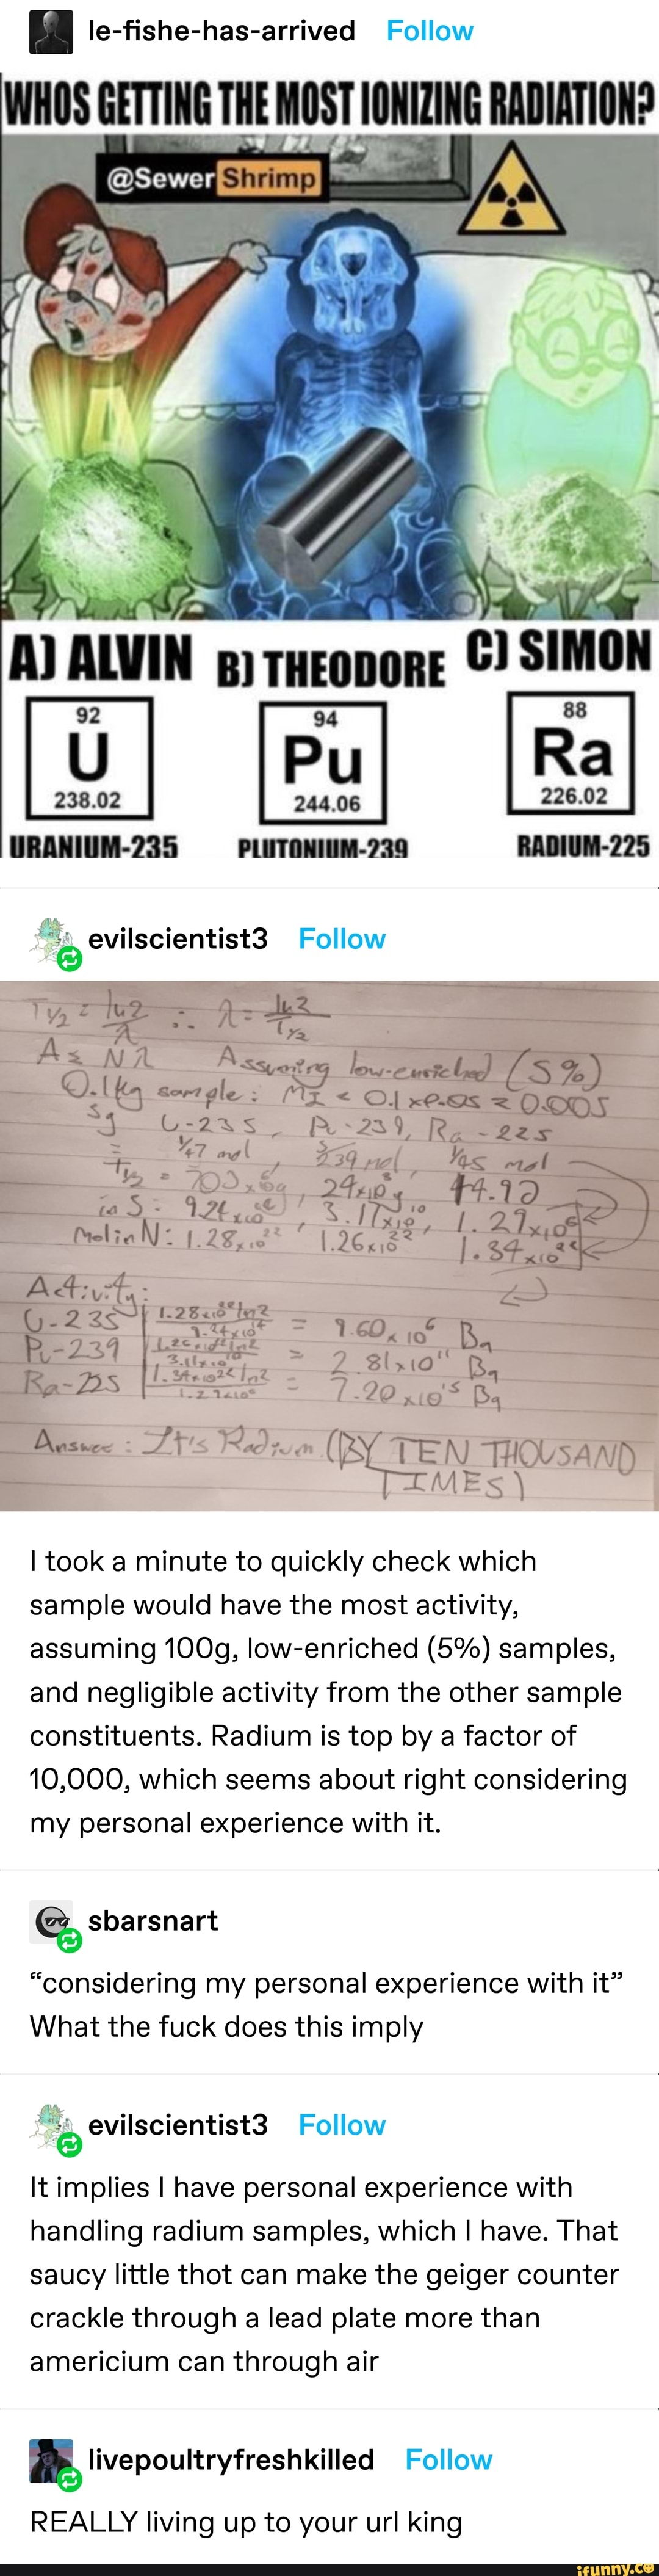 le-fishe-has-arrived Follow
WHOS GETTING THE MOST IONIZING RADIATION?
@Sewer Shrimp
A) ALVIN B) THEODORE C) SIMON
92 94 88
U Pu Ra
238.02 244.06 226.02
URANIUM-235 PLUTONIUM-239 RADIUM-225
evilscientist3 Follow
T½ = ln2/λ ∴ λ = ln2/T½
A = Nλ Assuming low-enriched (5%)
0.1kg sample: MI < 0.1 x 0.05 = 0.005
5g U-235, Pu-239, Ra-225
= 1/47 mol, 5/239 mol, 1/45 mol
Mol in N: 1.28x10²² 1.26x10²²
Activity:
U-235
Pu-239 = 2.81x10¹¹ Bq
Ra-225 = 7.20x10¹⁵ Bq
Answer: It's Radium (BY TEN THOUSAND
TIMES)
I took a minute to quickly check which
sample would have the most activity,
assuming 100g, low-enriched (5%) samples,
and negligible activity from the other sample
constituents. Radium is top by a factor of
10,000, which seems about right considering
my personal experience with it.
sbarsnart
“considering my personal experience with it”
What the fuck does this imply
evilscientist3 Follow
It implies I have personal experience with
handling radium samples, which I have. That
saucy little thot can make the geiger counter
crackle through a lead plate more than
americium can through air
livepoultryfreshkilled Follow
REALLY living up to your url king
ifunny.co